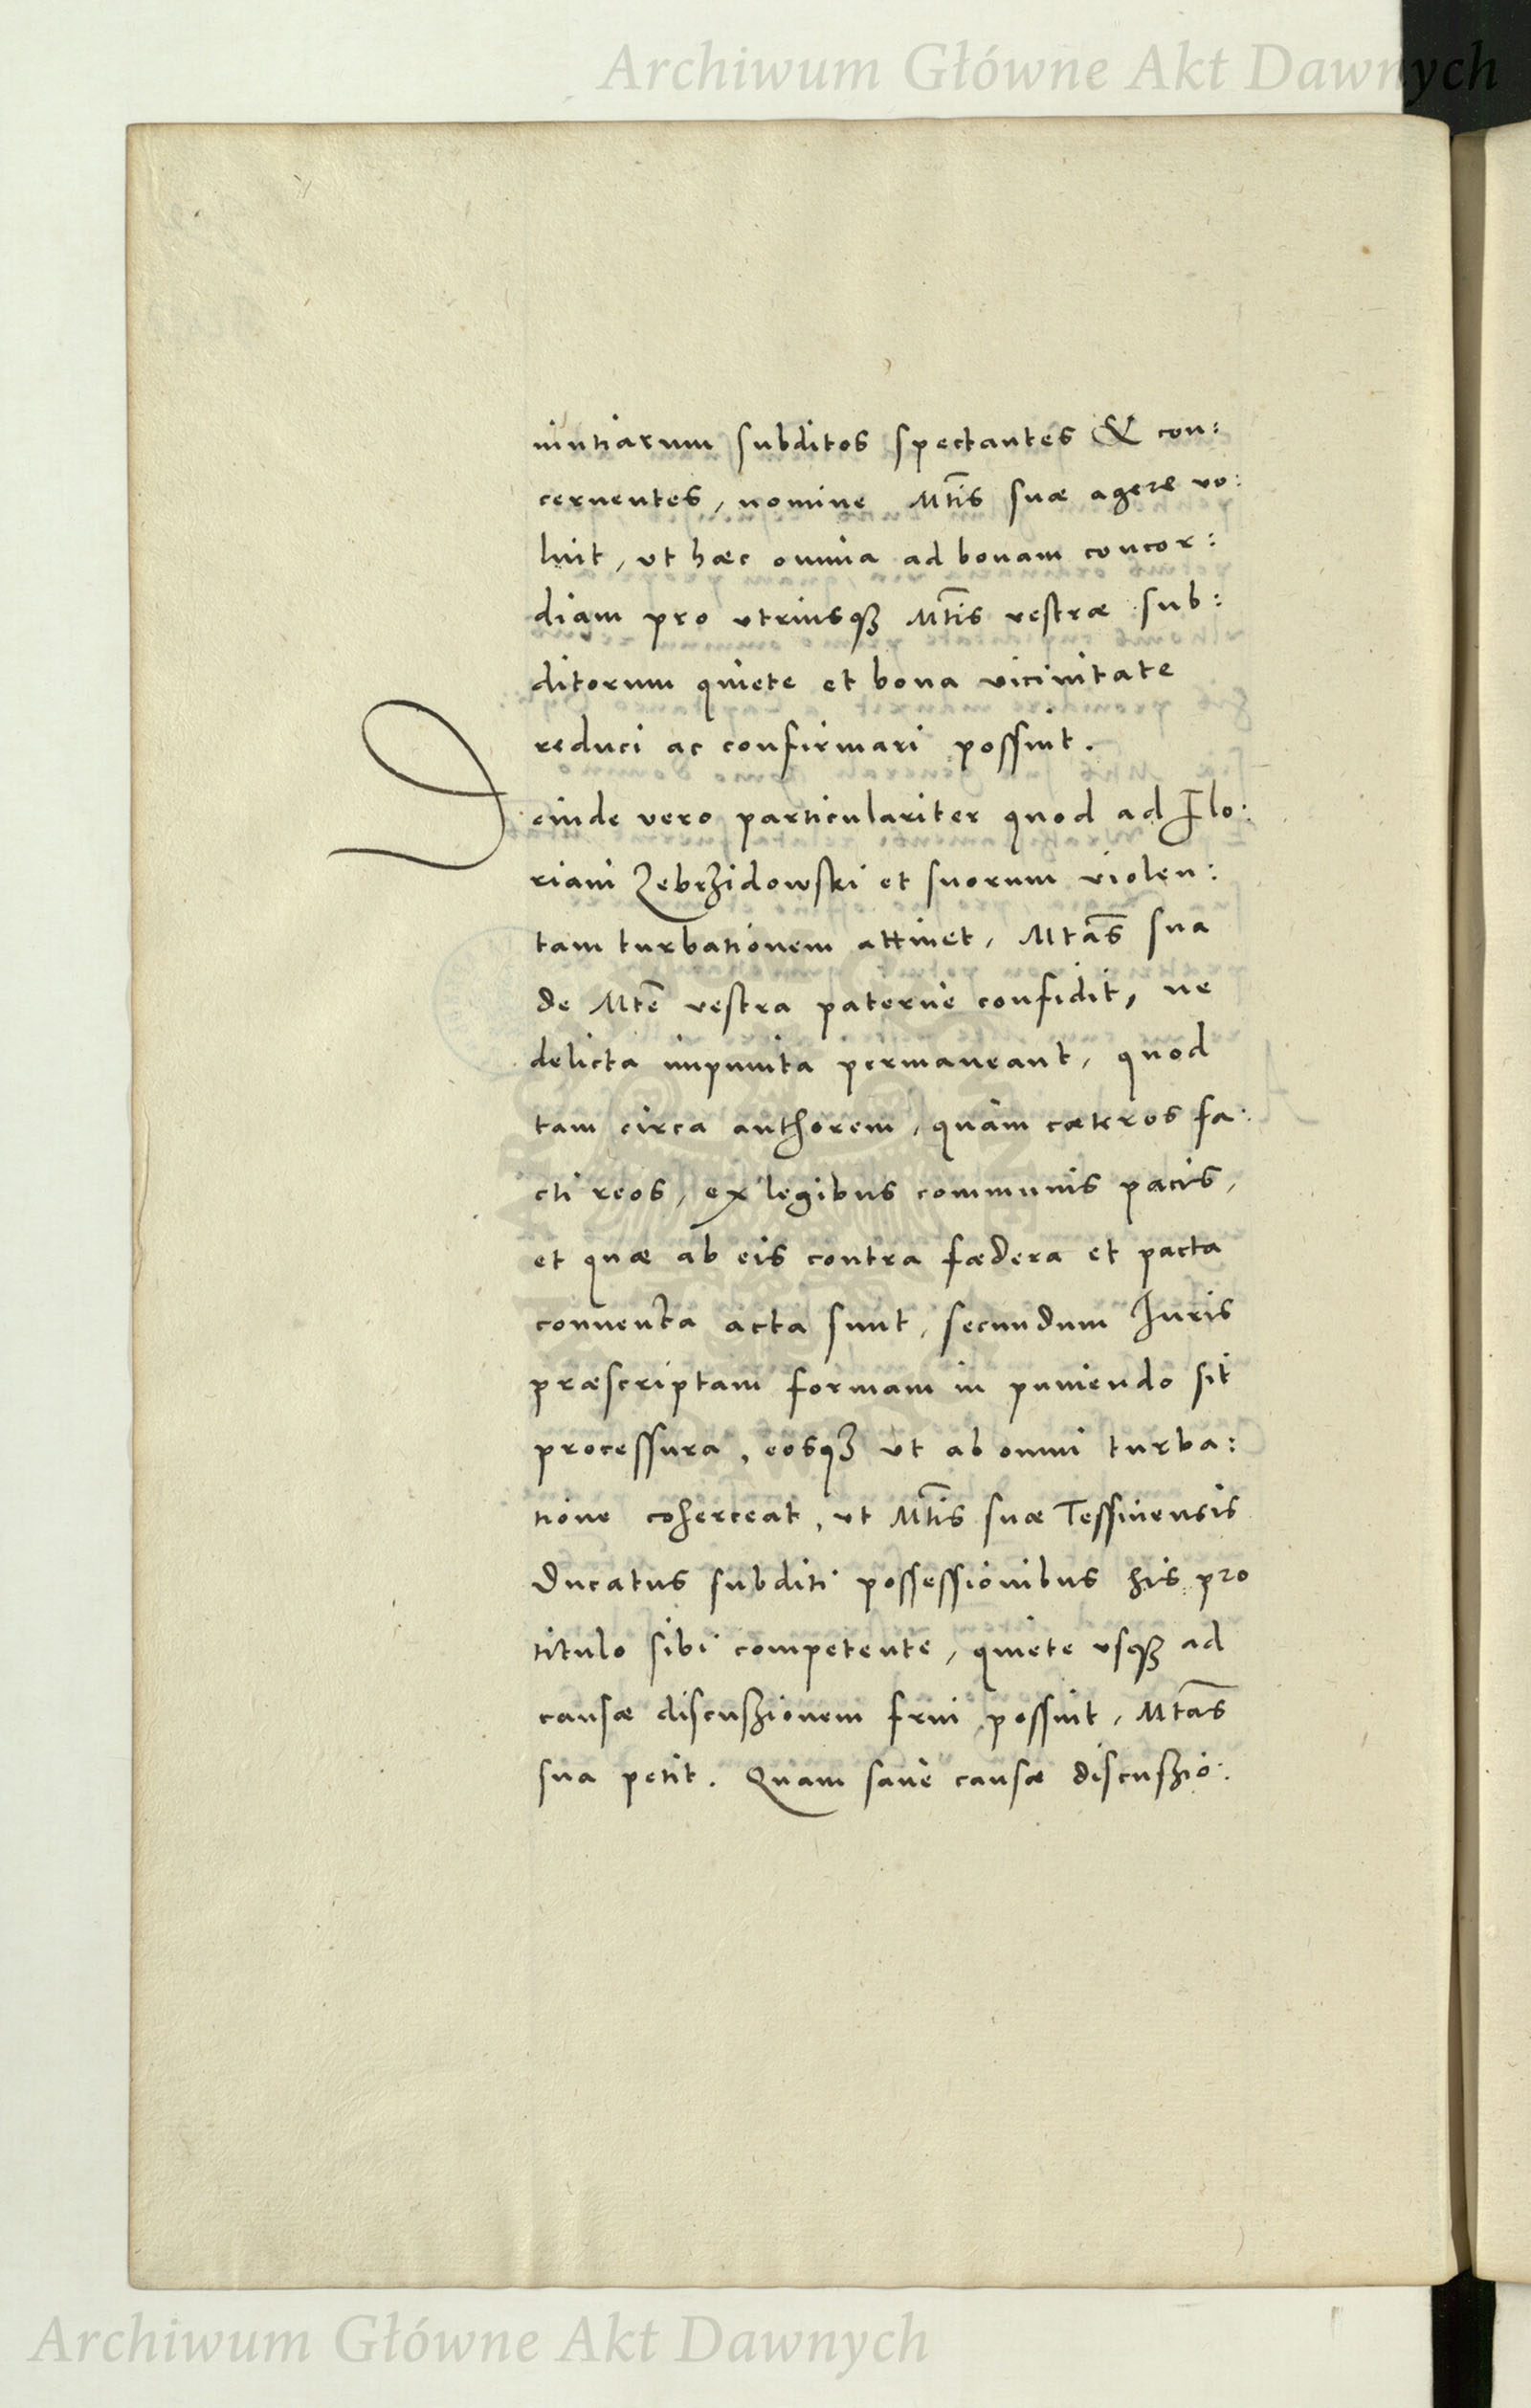 Archiwum Główne Akt Dawnych
uintiarum subditos spectantes & con:
cernentes, nomine Mtis suæ agere vo:
luit, ut hæc omnia ad bonam concor:
diam pro utriusqȝ Mtis vestræ sub:
ditorum quiete et bona vicinitate
reduci ac confirmari possint.
Deinde vero particulariter quod ad Flo:
riani Zebrzidowski et suorum violen:
tam turbationem attinet, Mtas sua
de Mte vestra paterne confidit, ne
delicta impunita permaneant, quod
tam circa authorem, quàm cæteros fa:
cti reos, ex legibus communis pacis,
et quæ ab eis contra fædera et pacta
conventa acta sunt, secundum Juris
præscriptam formam in puniendo sit
processura, eosqȝ ut ab omni turba:
tione coherceat, ut Mtis suæ Tessinensis
Ducatus subditi possessionibus his pro
titulo sibi competente, quiete usqȝ ad
causæ discuszionem frui possint, Mtas
sua petit. Quam sane causæ discuszio:
Archiwum Główne Akt Dawnych